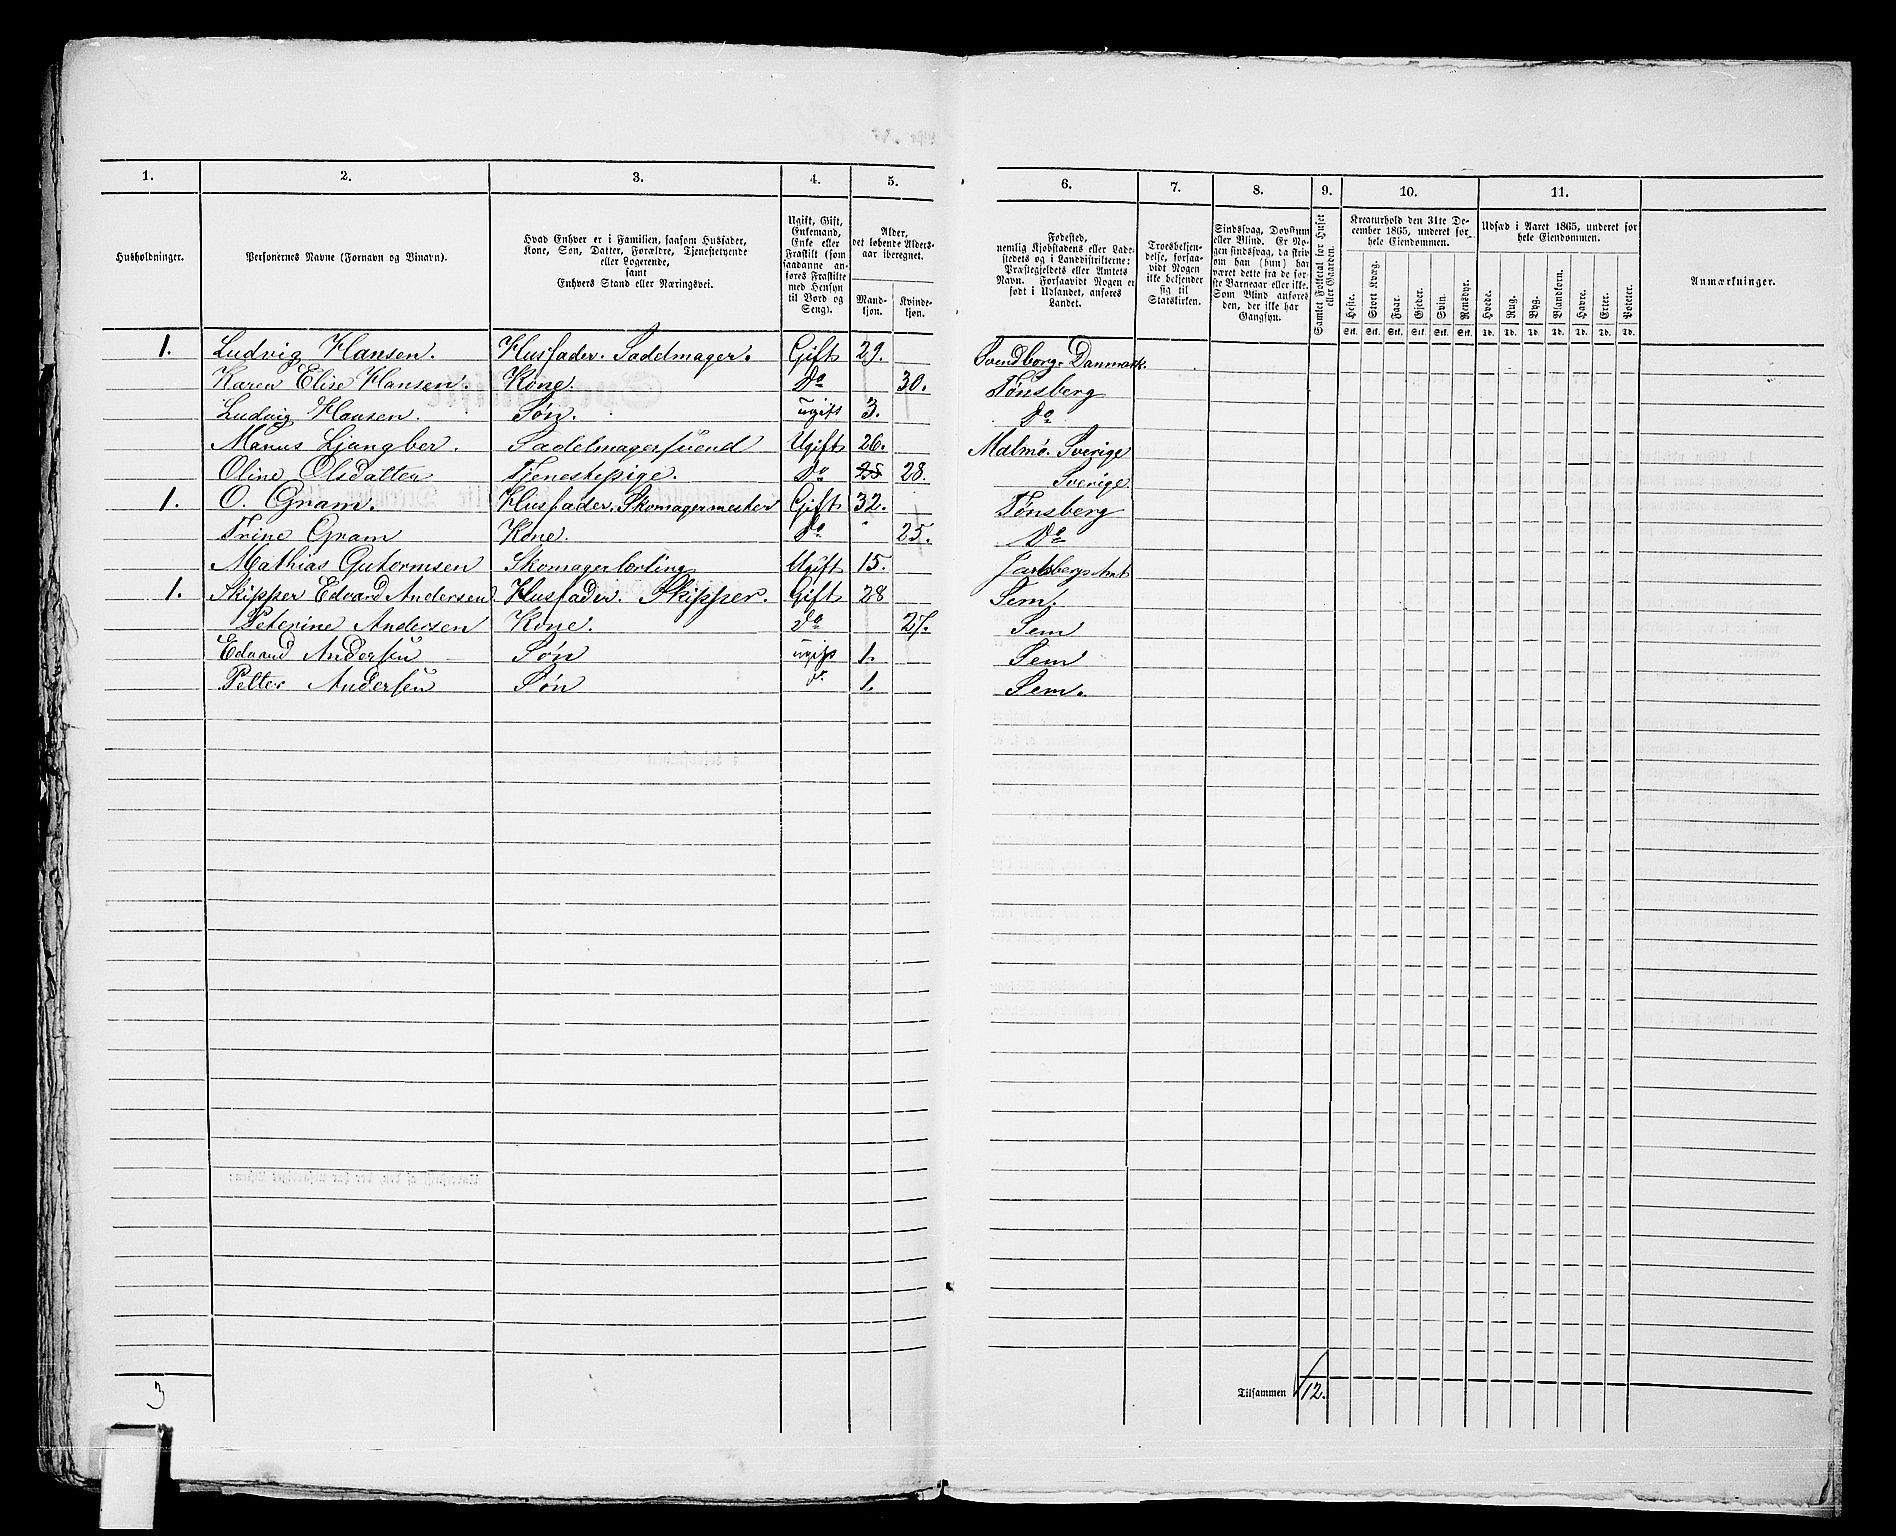 1. 2. 3. 4. 5. 6. 7. 8. 9. 10. 11.
Husholdninger.
Personernes Navne (Fornavn og Binavn).
Hvad Enhver er i Familien, saasom Husfader,
Kone, Søn, Datter, Forældre, Tjenestetyende
eller Logerende,
samt
Enhvers Stand eller Næringsvei.
Ugift, Gift,
Enkemand,
Enke eller
Fraskilt (som
saadanne an-
føres Fraskilte
med Hensyn
til Bord og
Seng).
Alder,
det løbende Alders-
aar iberegnet.
Mand-
kjøn.
Kvinde-
kjøn.
Fødested,
nemlig Kjøbstadens eller Lade-
stedets og i Landdistrikterne:
Præstegjeldets eller Amtets
Navn. Forsaavidt Nogen er
født i Udlandet, anføres
Landet.
Troesbekjen-
delse, forsaa-
vidt Nogen
ikke bekjender
sig til
Statskirken.
Sindssvag, Døvstum
eller Blind. Er No-
gen sindssvag, da skriv
om han (hun) har
været dette fra de før-
ste Barneaar eller ikke.
Som Blind anføres
den, der ikke har
Gangsyn.
Samlet Folketal for Huset
eller Gaarden.
Kreaturhold den 31te De-
cember 1865, underet for
hele Eiendommen.
Heste. Stort Kvæg. Faar. Gjeder. Svin. Rensdyr.
Stk. Stk. Stk. Stk. Stk. Stk.
Udsæd i Aaret 1865, underet for
hele Eiendommen.
Hvede. Rug. Byg. Blandkorn. Havre. Erter. Poteter.
Td. Td. Td. Td. Td. Td. Td.
Anmærkninger.
1. Ludvig Hansen. Husfader. Sadelmager. Gift 29. Svendborg. Danmark.
Karen Elise Hansen. Kone. Do 30. Tønsberg
Ludvig Hansen. Søn. ugift 3. Do
Manus Ljangber. Sadelmagersvend Ugift 26. Malmø. Sverige
Oline Olsdatter Tjenestepige. Do 28 28. Sverige
1. O. Gram. Husfader. Skomagermester Gift 32. Tønsberg
Trine Gram Kone. do " 25. Do
Mathias Gutormsen Skomagerlærling Ugift 15. Jarlsbergs Amt
1. Skipper Edvard Andersen Husfader. Skipper. Gift 28 Sem.
Peterine Andersen Kone. do 27. Sem
Edvard Andersen Søn ugift 1. Sem
Petter Andersen Søn d. 1. Sem.
3
Tilsammen 12.